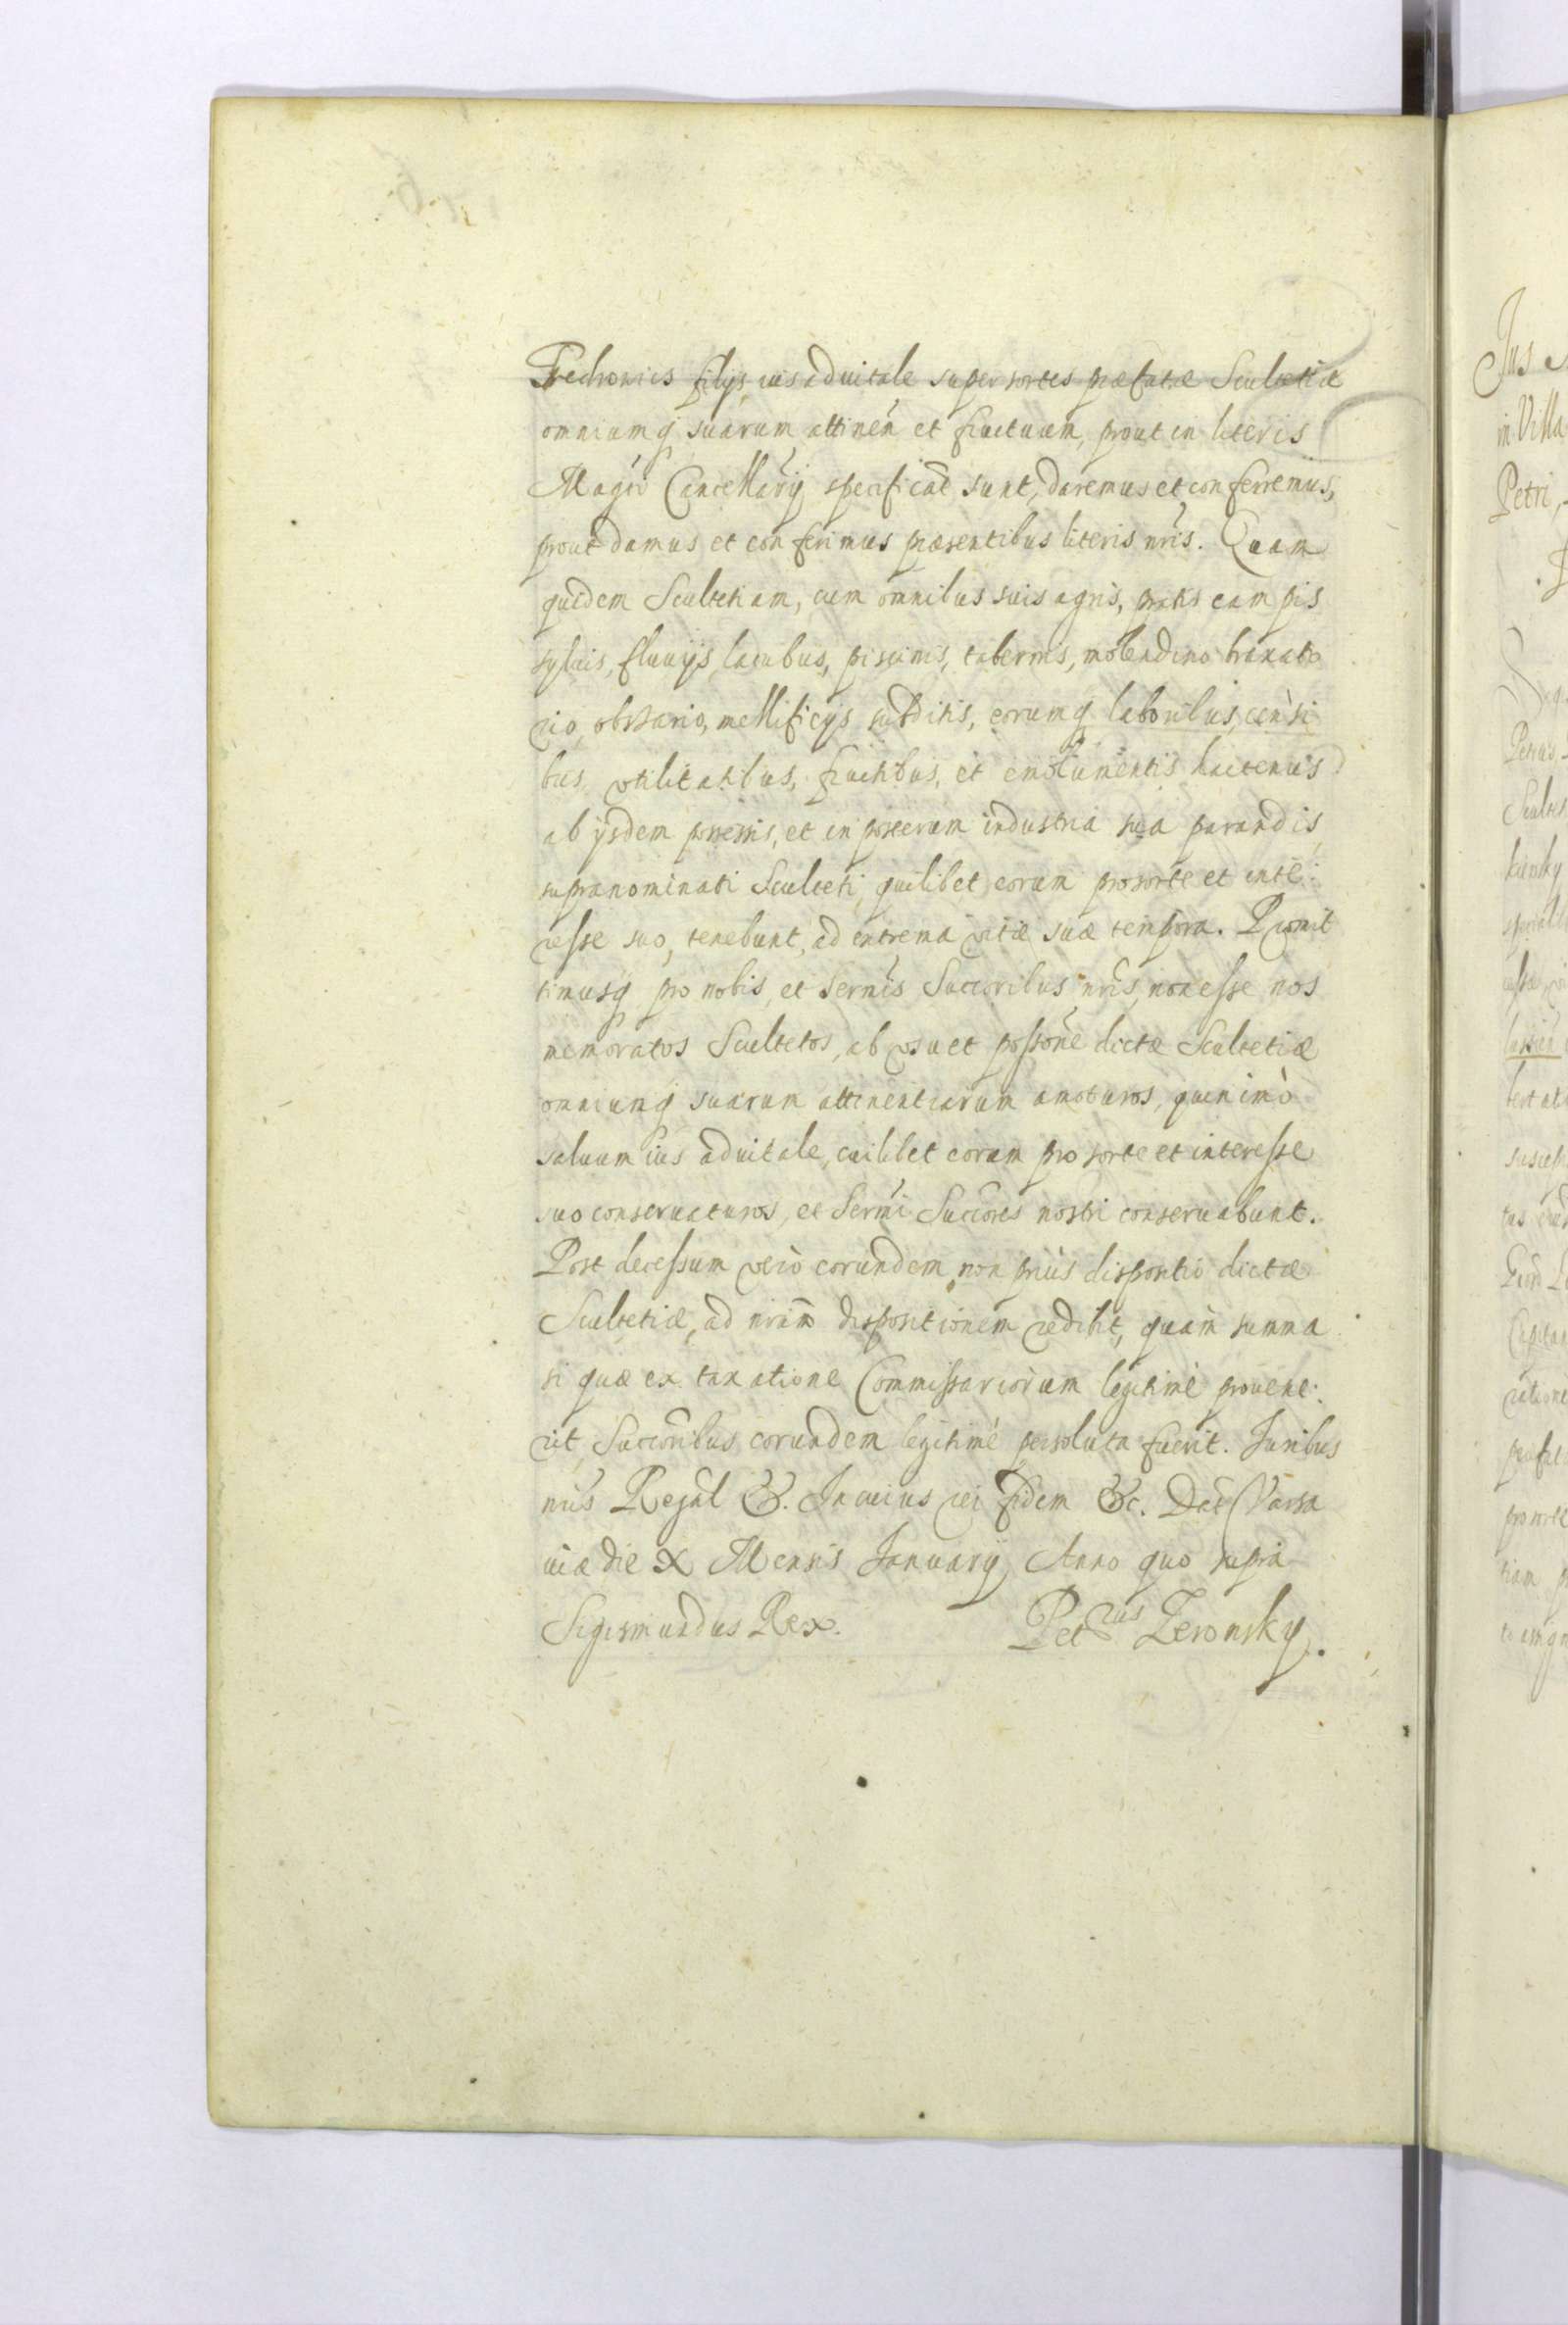 filijs, ius aduitale super sortes præfatæ Scultetiæ
omniumq suarum attinen et fructuum, prout in literis
Magci Cancellarij specificat sunt, daremus et conferremus,
prout damus et conferimus præsentibus literis nris. Quam
quidem Scultetiam, cum omnibus suis agris, pratis campis
syluis, fluuijs, lacubus, piscinis, tabernis, molendino
mellificijs subditis, eorumq laboribus, censi
bus, vtilitatibus, fructibus, et emolumentis hactenus
ab ijsdem possessis, et in posterum industria sua parandis,
supranominati Sculteti, quilibet eorum pro sorte et inte:
resse suo, tenebunt, ad extrema vitæ suæ tempora. Promit
timusq pro nobis, et Sermis Succoribus nris, non esse nos
memoratos Scultetos, ab vsu et possone dictæ Scultetiæ
omniumq suarum attinentiarum amoturos, quin imò
saluum ius aduitale, cuilibet eorum pro sorte et interesse
suo conseruaturos, et Sermi Succores nostri conseruabunt.
Post decessum verò eorundem non priùs dispositio dictæ
Scultetiæ, ad nram dispositionem redibit, quàm summa
si quæ ex taxatione Commissariorum legitimè prouene:
rit, Succoribus eorundem legitimè persoluta fuerit. Iuribus
nris Regal &. In cuius rei fidem &c. Dat Varsa
uiæ die X Mensis Ianuarij Anno quo supra
Sigismundus Rex. Petrus Zeronsky.
Ius
in Villa
Petri,